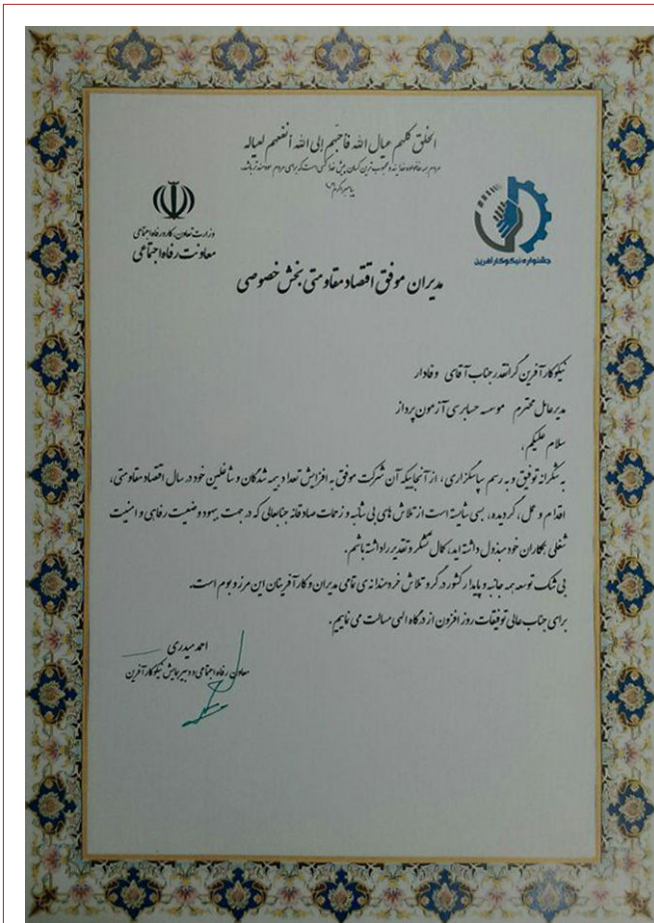 الخلق كلهم عيال الله فأحبهم إلى الله أنفعهم لعياله
مردم همه خانواده خدایند و محبوب ترین کسان پیش خدا کسی است که برای مردم سودمندتر باشد.
پیامبر اکرم (ص)
جشنواره نیکوکارآفرین
وزارت تعاون، کار و رفاه اجتماعی
معاونت رفاه اجتماعی
مدیران موفق اقتصاد مقاومتی بخش خصوصی
نیکوکارآفرین گرانقدر جناب آقای وفادار
مدیرعامل محترم موسسه حسابرسی آزمون پرداز
سلام علیکم،
به شکرانه توفیق و به رسم سپاسگزاری، از آنجاییکه آن شرکت موفق به افزایش تعداد بیمه شدگان و شاغلین خود در سال اقتصاد مقاومتی،
اقدام و عمل، گردیده، بسی شایسته است از تلاش های بی شائبه و زحمات صادقانه جنابعالی که در جهت بهبود وضعیت رفاهی و امنیت
شغلی همکاران خود مبذول داشته اید، کمال تشکر و تقدیر را داشته باشم.
بی شک توسعه همه جانبه و پایدار کشور در گرو تلاش خردمندانه ی تمامی مدیران و کارآفرینان این مرز و بوم است.
برای جناب عالی توفیقات روز افزون از درگاه الهی مسالت می نماییم.
احمد میدری
معاون رفاه اجتماعی و دبیر همایش نیکوکارآفرین